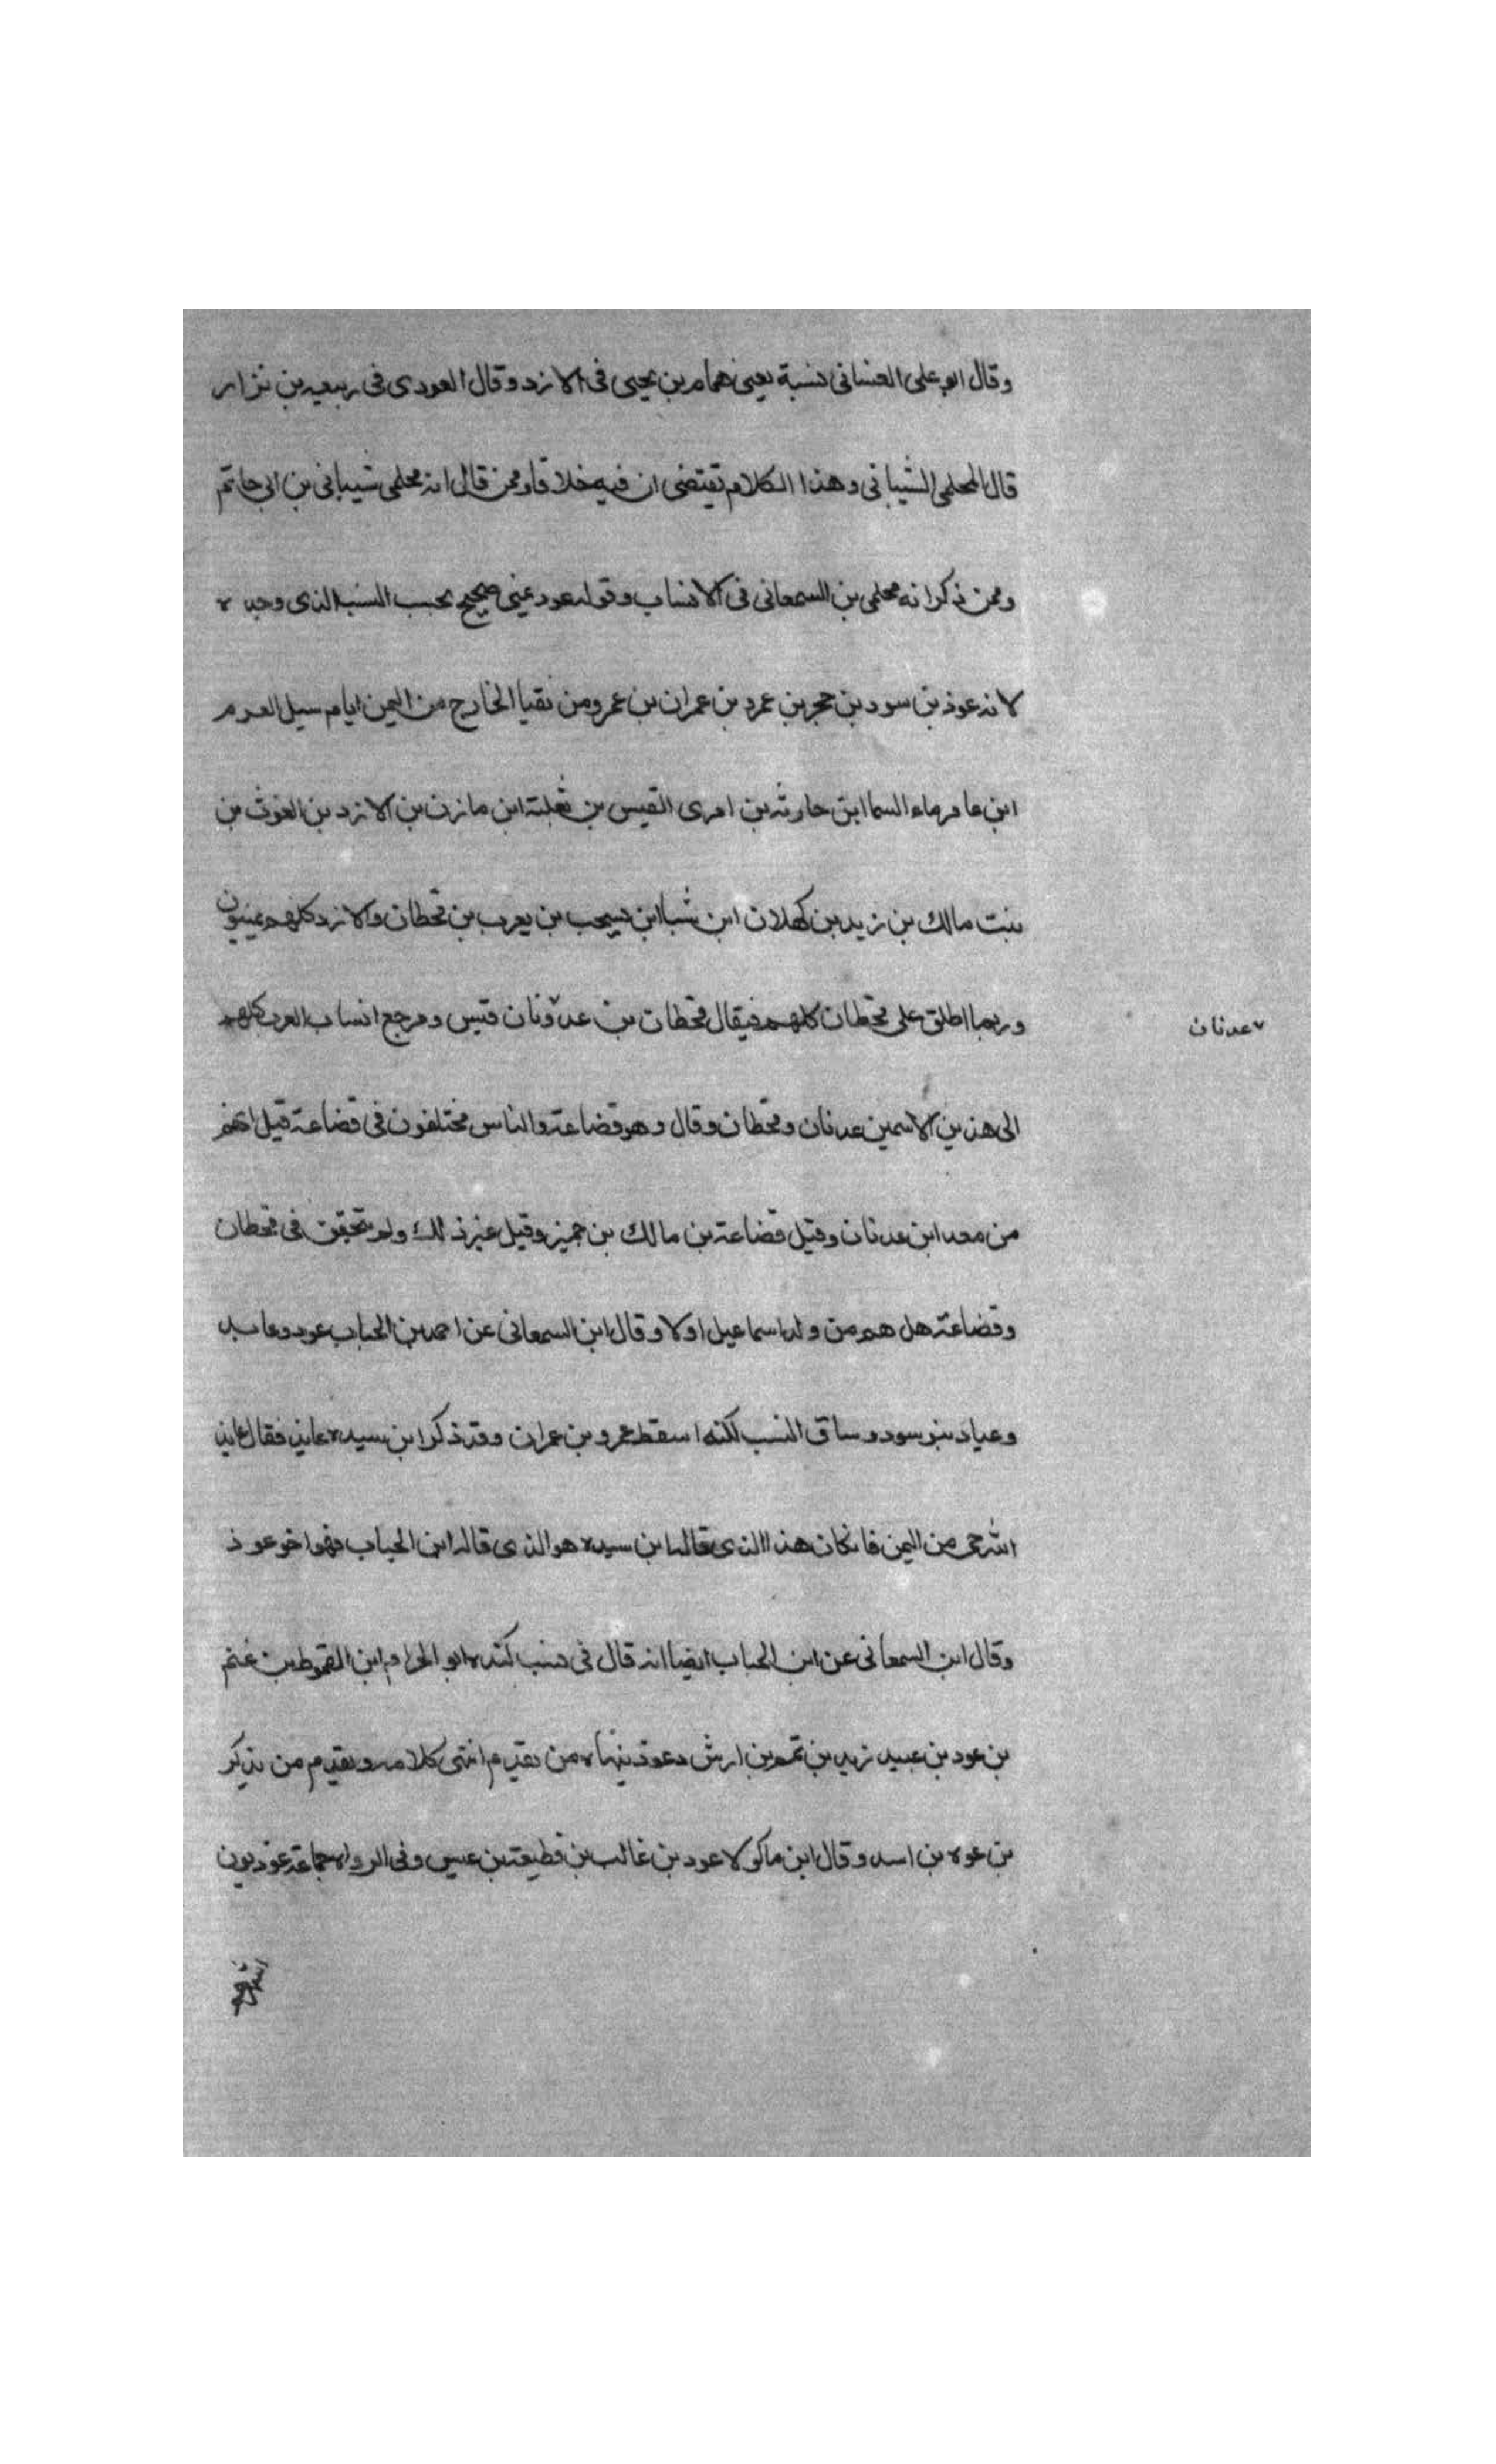 وقال ابو على الغسانى نسبة يعنى همام بن يحيى فى الازد وقال العودى فى ربيعه بن نزار
قال المحلمى الشيبانى وهذا الكلام يقتضى ان فيه خلافا وممن قال انه محلمى شيبانى بن ابى حاتم
وممن ذكر انه محلمى بن السمعانى فى الانساب وقوله عود عنى صحيح بحسب النسب الذى وجده
لانه عوذ بن سود بن حجر بن عمرد بن عمران بن عمرو من نقيا الخارج من اليمن ايام سيل العرم
ابن عامر ماء السما ابن حارثه بن امرى القيس بن ثعلبة ابن مازن بن الازد بن الغوث بن
بنت مالك بن زيد بن كهلان ابن شبا ابن يسجب بن يعرب بن قحطان والازد كلهم عينيون
وربما اطلق على قحطان كلهم فيقال قحطان بن عدونان قيس ومرجع انساب العرب كلهم
عدنان
الى هذين الاسمين عدنان وقحطان وقال وهو قضاعة والناس مختلفون فى قضاعة قيل انهم
من معد ابن عدنان وقيل قضاعة بن مالك بن حميز وقيل غيرذلك ولم يتحقق فى قحطان
وقضاعة هل هم من ولد اسماعيل اولا وقال ابن السمعانى عن احمد بن الحباب عود وعايد
وعياذ بنو سود وساق النسب لكنه اسقط عمرو بن عمران وقد ذكر ابن سيده عايذ فقال عايذ
الله حى من اليمن فانكان هذا الذى قاله ابن سيده هو الذى قاله ابن الحباب فهو اخو عوذ
وقال ابن السمعانى عن ابن الحباب ايضا انه قال فى نسب كنده ابو الحرام ابن العمرط بن غنم
بن عود بن عبيد زيد بن تم بن ارش وعوذ ينهاه من تقدم انتهى كلامه وتقدم من يذكر
بن عوه بن اسد وقال ابن ماكولا عود بن غالب بن قطيعة بن عبس وفى الرواه جماعة عوذيون
انتهى